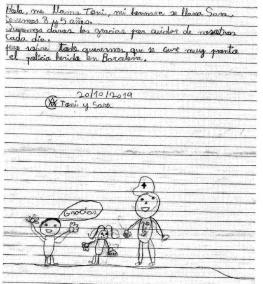 Hola, me llamo Toni, mi hermana se llama Sara,
tenemos 8 y 5 años.
Queremos daros las gracias por cuidar de nosotros
cada día.
sobre todo queremos que se cure muy pronto
el policia herido en Barcelona.
20/10/2019
Toni y Sara
Gracias